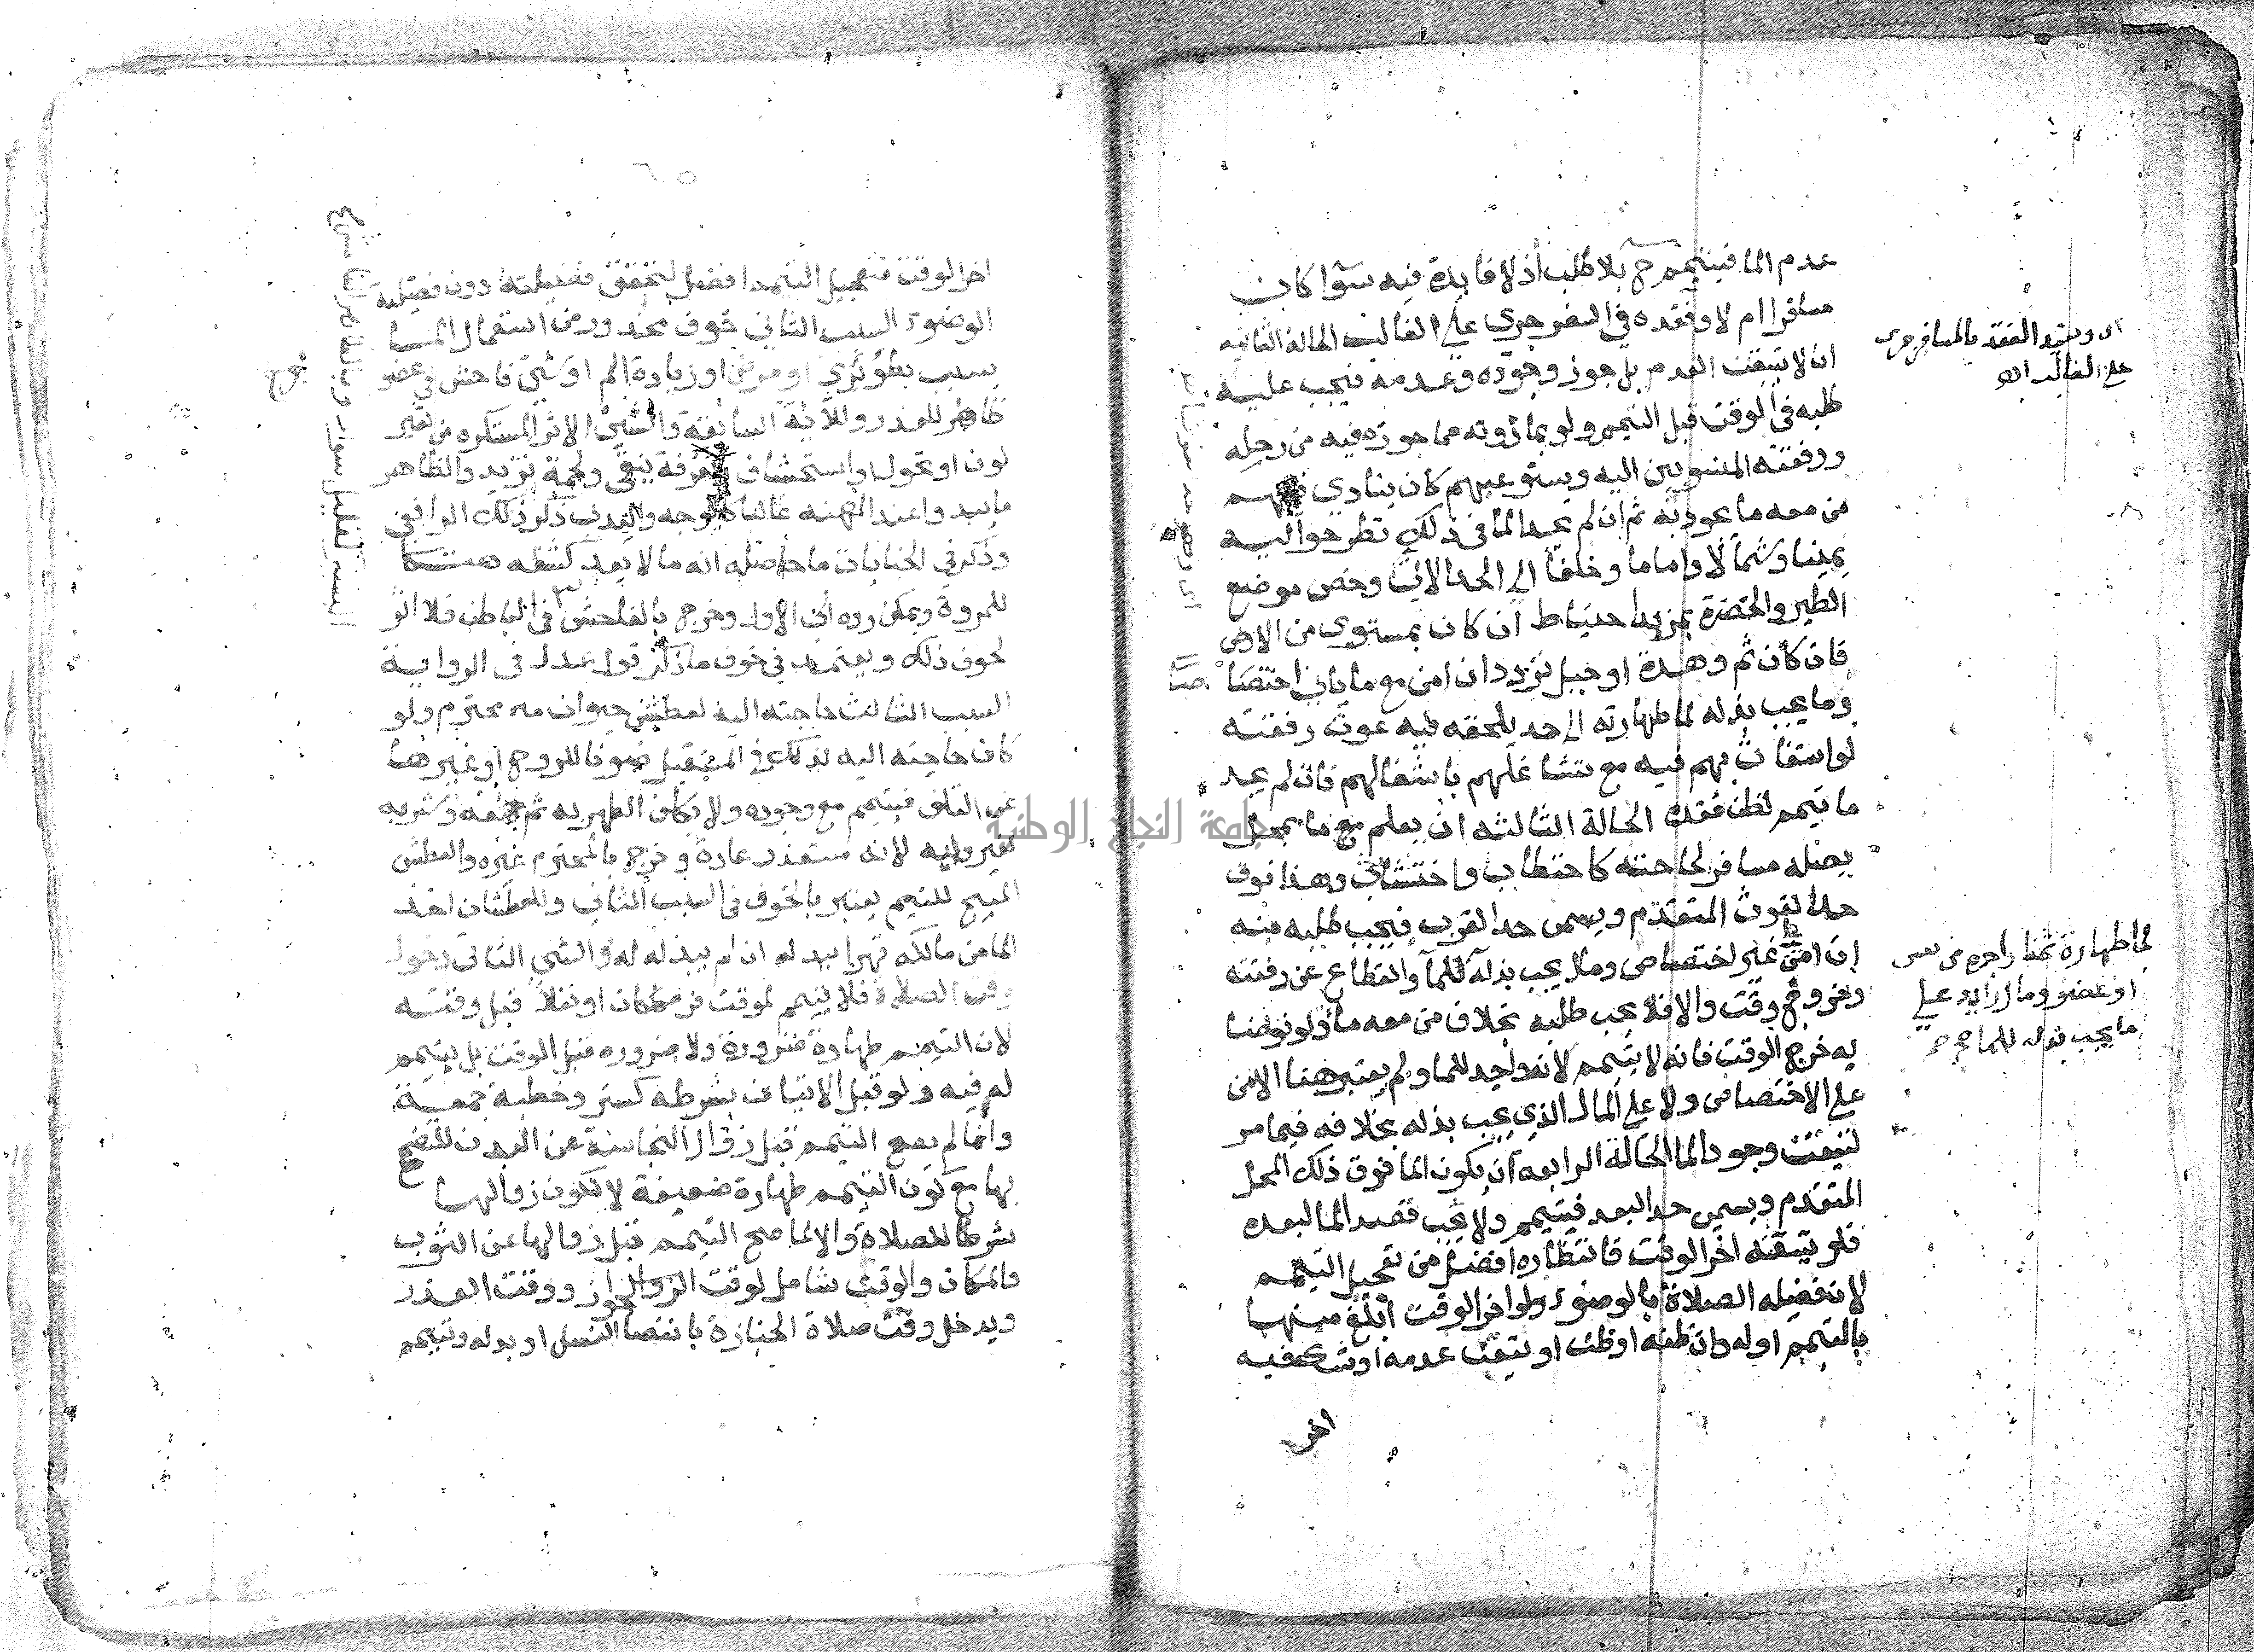 عدم الما فيتيمم ح بلا طلب اذ لا فايدة فيه سوآ كان
مسافرا ام لا وفقده في السفر جري علي الغالب الحالة الثانيه
ان لا يتيقن العدم بل جوز وجوده وعدمه فيجب عليه
طلبه في الوقت قبل التيمم ولو بماذونه مما جوزه فيه من رحله
ورفقته المنسوبين اليه ويستوعبهم كان ينادي فيهم
من معه ما يجود به ثم ان لم يجد الما في ذلك نظر حواليه
يمينا وشمالا واماما وخلفا الي الحد الاتي وخص موضع
الطير والخضرة بمزيد احتياط ان كان بمستوي من الارض
فان كان ثم وهدة او جبل تردد ان امن مع ما ياتي اختصاصا
وما يجب بذله لما طهارته الي حد يلحقه فيه غوث رفقته
لو استغاث بهم فيه مع تشاغلهم باشغالهم فان لم يجد
ما تيمم لظن فقده الحالة الثالثه ان يعلم مع ما بمحل
يصله مسافر لحاجته كاحتطاب واحتشاش وهذا فوق
حد الغوث المتقدم ويسمي حد القرب فيجب طلبه منه
ان امن غير اختصاص ومال يجب بذله للمآ وانقطاع عن رفقته
وخروج وقت والا فلا يجب طلبه بخلاف من معه ما ولو توضا
به خرج الوقت فانه لا يتيمم لانه واجد للما ولم يعتبر هنا الامن
علي الاختصاص ولا علي المال الذي يجب بذله بخلافه فيما مر
لتيقن وجود الما الحالة الرابعه ان يكون الما فوق ذلك المحل
المتقدم ويسمي حد البعد فيتيمم ولا يجب قصد الما لبعده
فلو تيقنه اخر الوقت فانتظاره افضل من تعجيل التيمم
لان فضيله الصلاة بالوضوء ولو اخر الوقت ابلغ منها
بالتيمم اوله وان ظنه او ظن او تيقن عدمه او شك فيه
اخر
وتقييد الفقد بالمسافر جري
علي الغالب اه
لما طهارة ثمنا او اجرة من نفس
او عضو ومال زايد علي
ما يجب بذله للما
٦٥
اخر الوقت فتعجيل التيمم افضل لتحقق فضيلته دون فضيلة
الوضوء السبب الثاني خوف محذور من استعمال الما
بسبب بطؤ برئ او مرض او زيادة الم او شين فاحش في عضو
ظاهر للعذر وللآية السابقة والشين الاثر المستكره من تغير
لون او نحول او استحشاف وثغرة تبقي ولحمة تزيد والظاهر
ما يبدو عند المهنه غالبا كالوجه واليدين ذكر ذلك الرافعي
وذكر في الجنايات ما حاصله انه ما لا يعد كشفه هتكا
للمروة ويمكن رده الي الاول وخرج بالفاحش في الباطن فلا اثر
لخوف ذلك ويعتمد في خوف ما ذكر قول عدل في الرواية
السبب الثالث حاجته اليه لعطش حيوان محترم ولو
كان حاجته اليه لذلك في المستقبل صونا للروح او غيرها
عن التلف فيتيمم مع وجوده ولا يكلف الطهر به ثم جمعه وشربه
لغير دابه لانه مستقذر عادة وخرج بالمحترم غيره والعطش
المبيح للتيمم يعتبر بالخوف في السبب الثاني وللعطشان اخذ
الما من مالكه قهرا ببدله ان لم يبذله له والشي الثاني دخول
وقت الصلاة فلا يتيمم لموقت فرضا كان او نفلا قبل وقته
لان التيمم طهارة ضرورة ولا ضروره قبل الوقت بل يتيمم
له فيه ولو قبل الاتيان بشرطه كستر وخطبة جمعة
وانما لم يصح التيمم قبل زوال النجاسة عن البدن للتضمخ
بها مع كون التيمم طهارة ضعيفة لا لكون زوالها
شرطا للصلاة والا لما صح التيمم قبل زوالها عن الثوب
والمكان والوقت شامل لوقت الجواز ووقت العذر
ويدخل وقت صلاة الجنازة بانقضا الغسل او بدله وتيمم
جامعة النجاح الوطنية